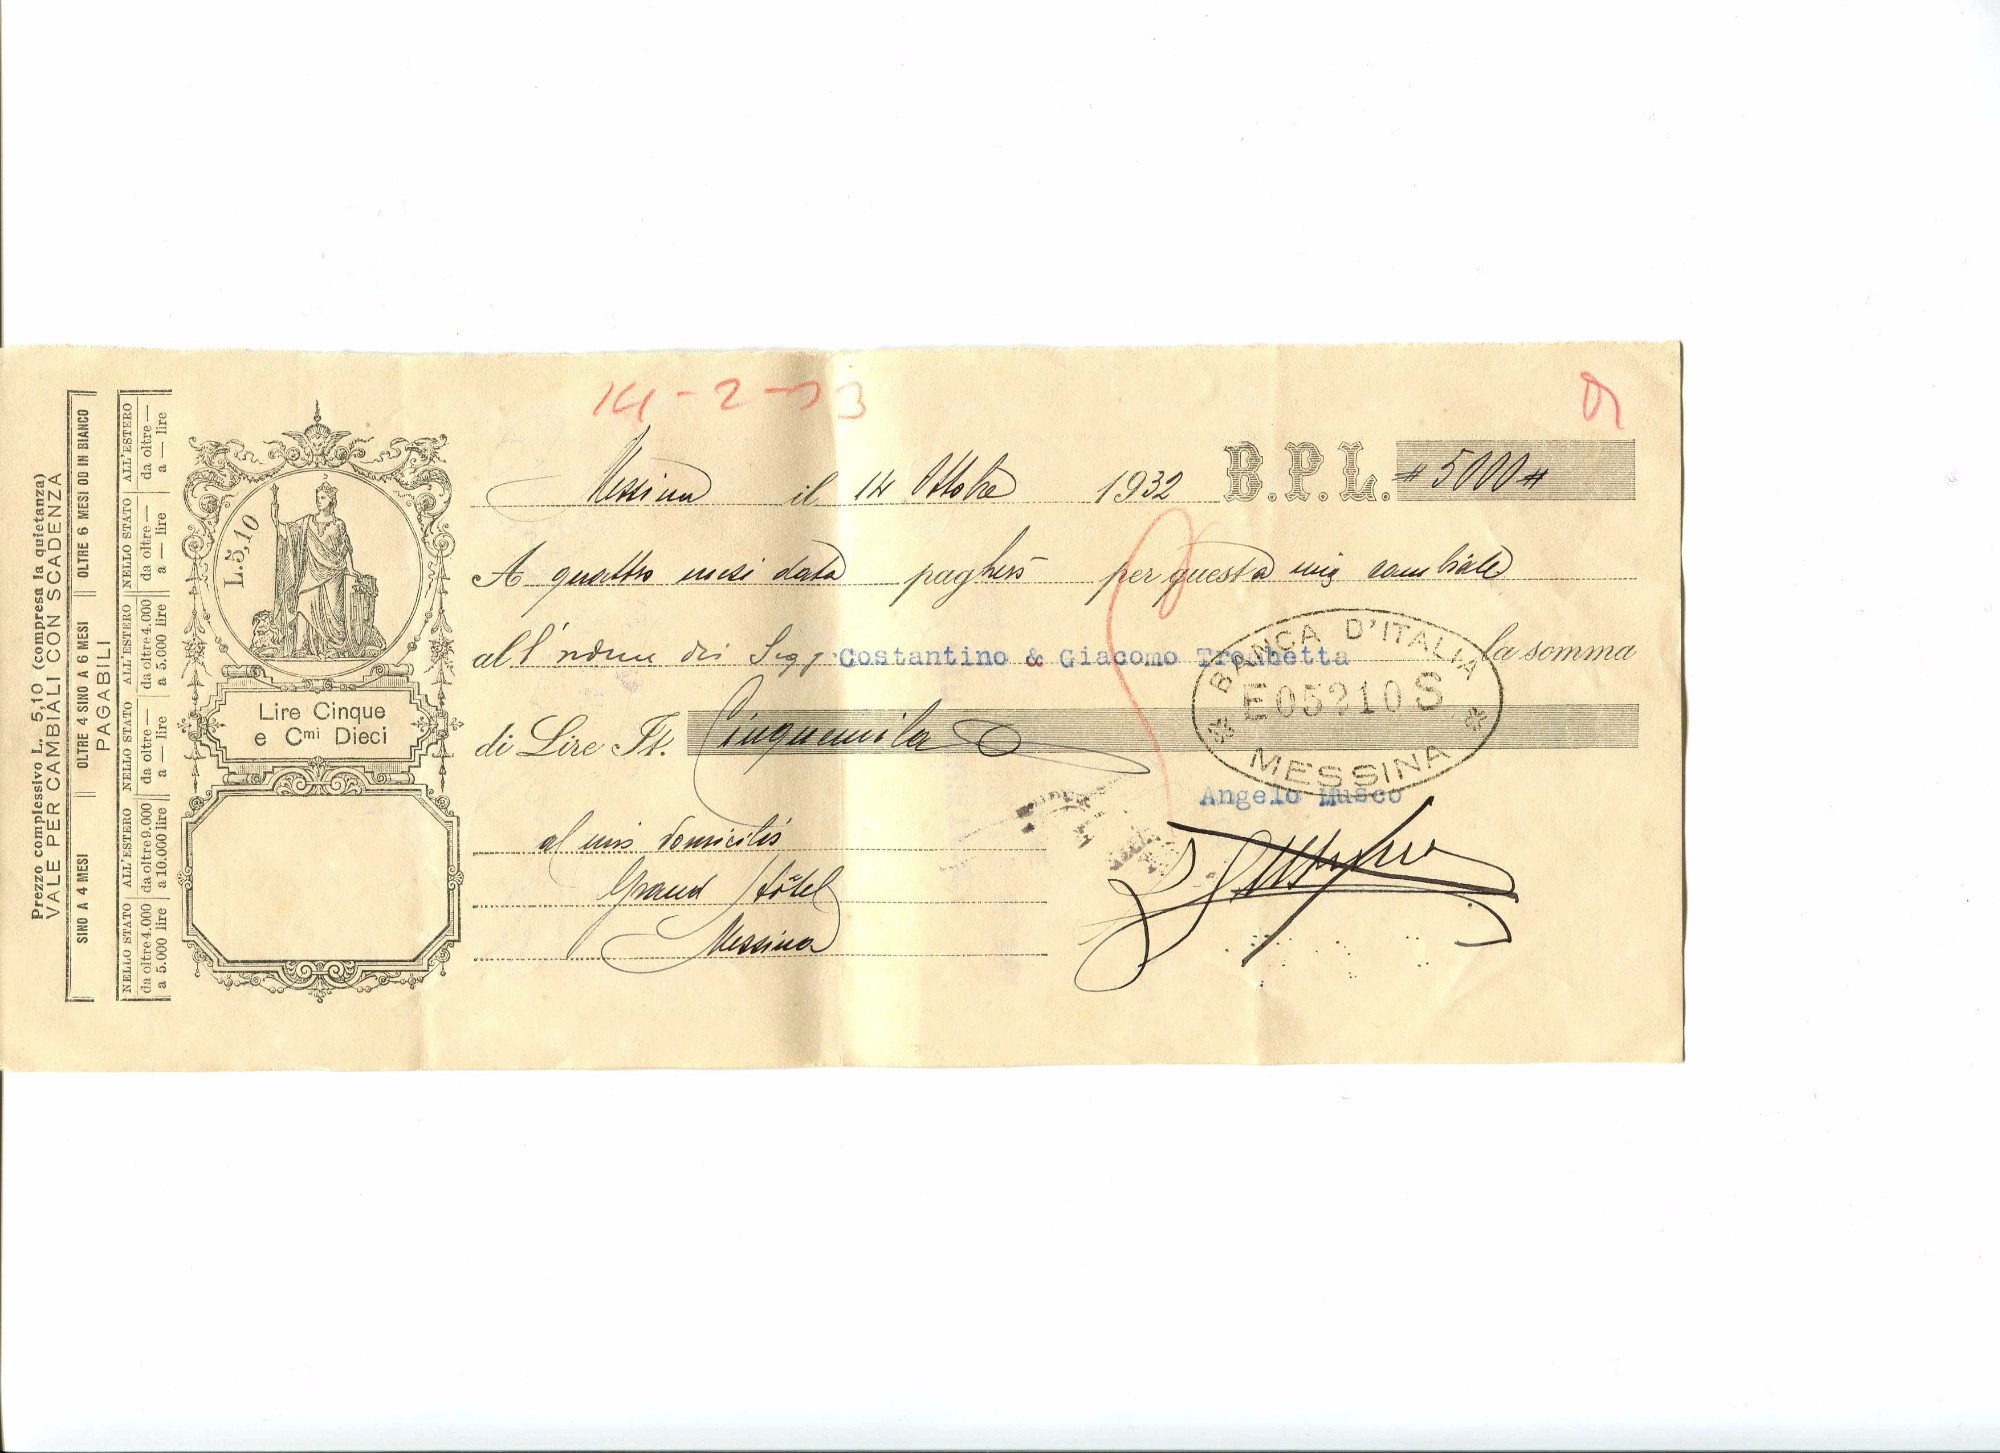 Prezzo complessivo L. 5,10 (compresa la quietanza)
VALE PER CAMBIALI CON SCADENZA
SINO A 4 MESI
OLTRE 4 SINO A 6 MESI
OLTRE 6 MESI OD IN BIANCO
PAGABILI
NELLO STATO
da oltre 4.000
a 5.000 lire
ALL'ESTERO
da oltre 9.000
a 10.000 lire
NELLO STATO
da oltre —
a — lire
ALL'ESTERO
da oltre 4.000
a 5.000 lire
NELLO STATO
da oltre —
a — lire
ALL'ESTERO
da oltre —
a — lire
L.5,10
Lire Cinque
e Cmi Dieci
14-2-33
Messina il 14 Ottobre 1932 B.P.L. # 5000 #
A quattro mesi data pagherò per questa mia cambiale
all'ordine dei Sigg. Costantino & Giacomo Trombetta la somma
di Lire It. Cinquemila
BANCA D'ITALIA
E05210S
MESSINA
Angelo Musco
al mio domicilio
Grand Hôtel
Messina